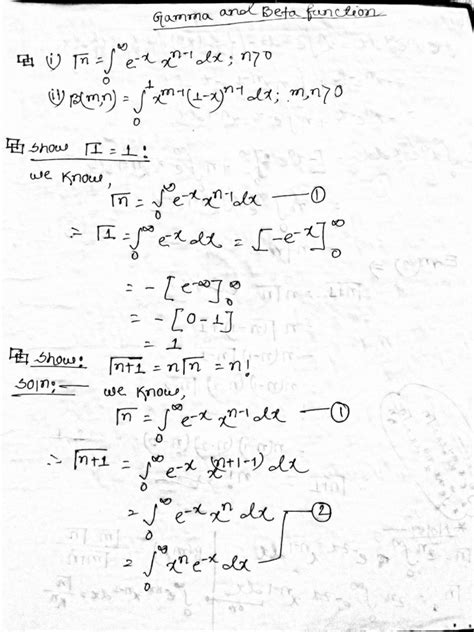 Gamma and Beta function
(i) Γn = ∫₀^∞ e^-x x^n-1 dx ; n>0
(ii) β(m,n) = ∫₀^1 x^m-1 (1-x)^n-1 dx ; m,n>0
Show Γ1 = 1 :
we know,
Γn = ∫₀^∞ e^-x x^n-1 dx —— ①
∴ Γ1 = ∫₀^∞ e^-x dx = [-e^-x]₀^∞
= - [e^-∞]₀^∞
= - [0-1]
= 1
Show: Γn+1 = nΓn = n!
Soln:— we know,
Γn = ∫₀^∞ e^-x x^n-1 dx —— ①
∴ Γn+1 = ∫₀^∞ e^-x x^(n+1-1) dx
= ∫₀^∞ e^-x x^n dx —— ②
= ∫₀^∞ x^n e^-x dx